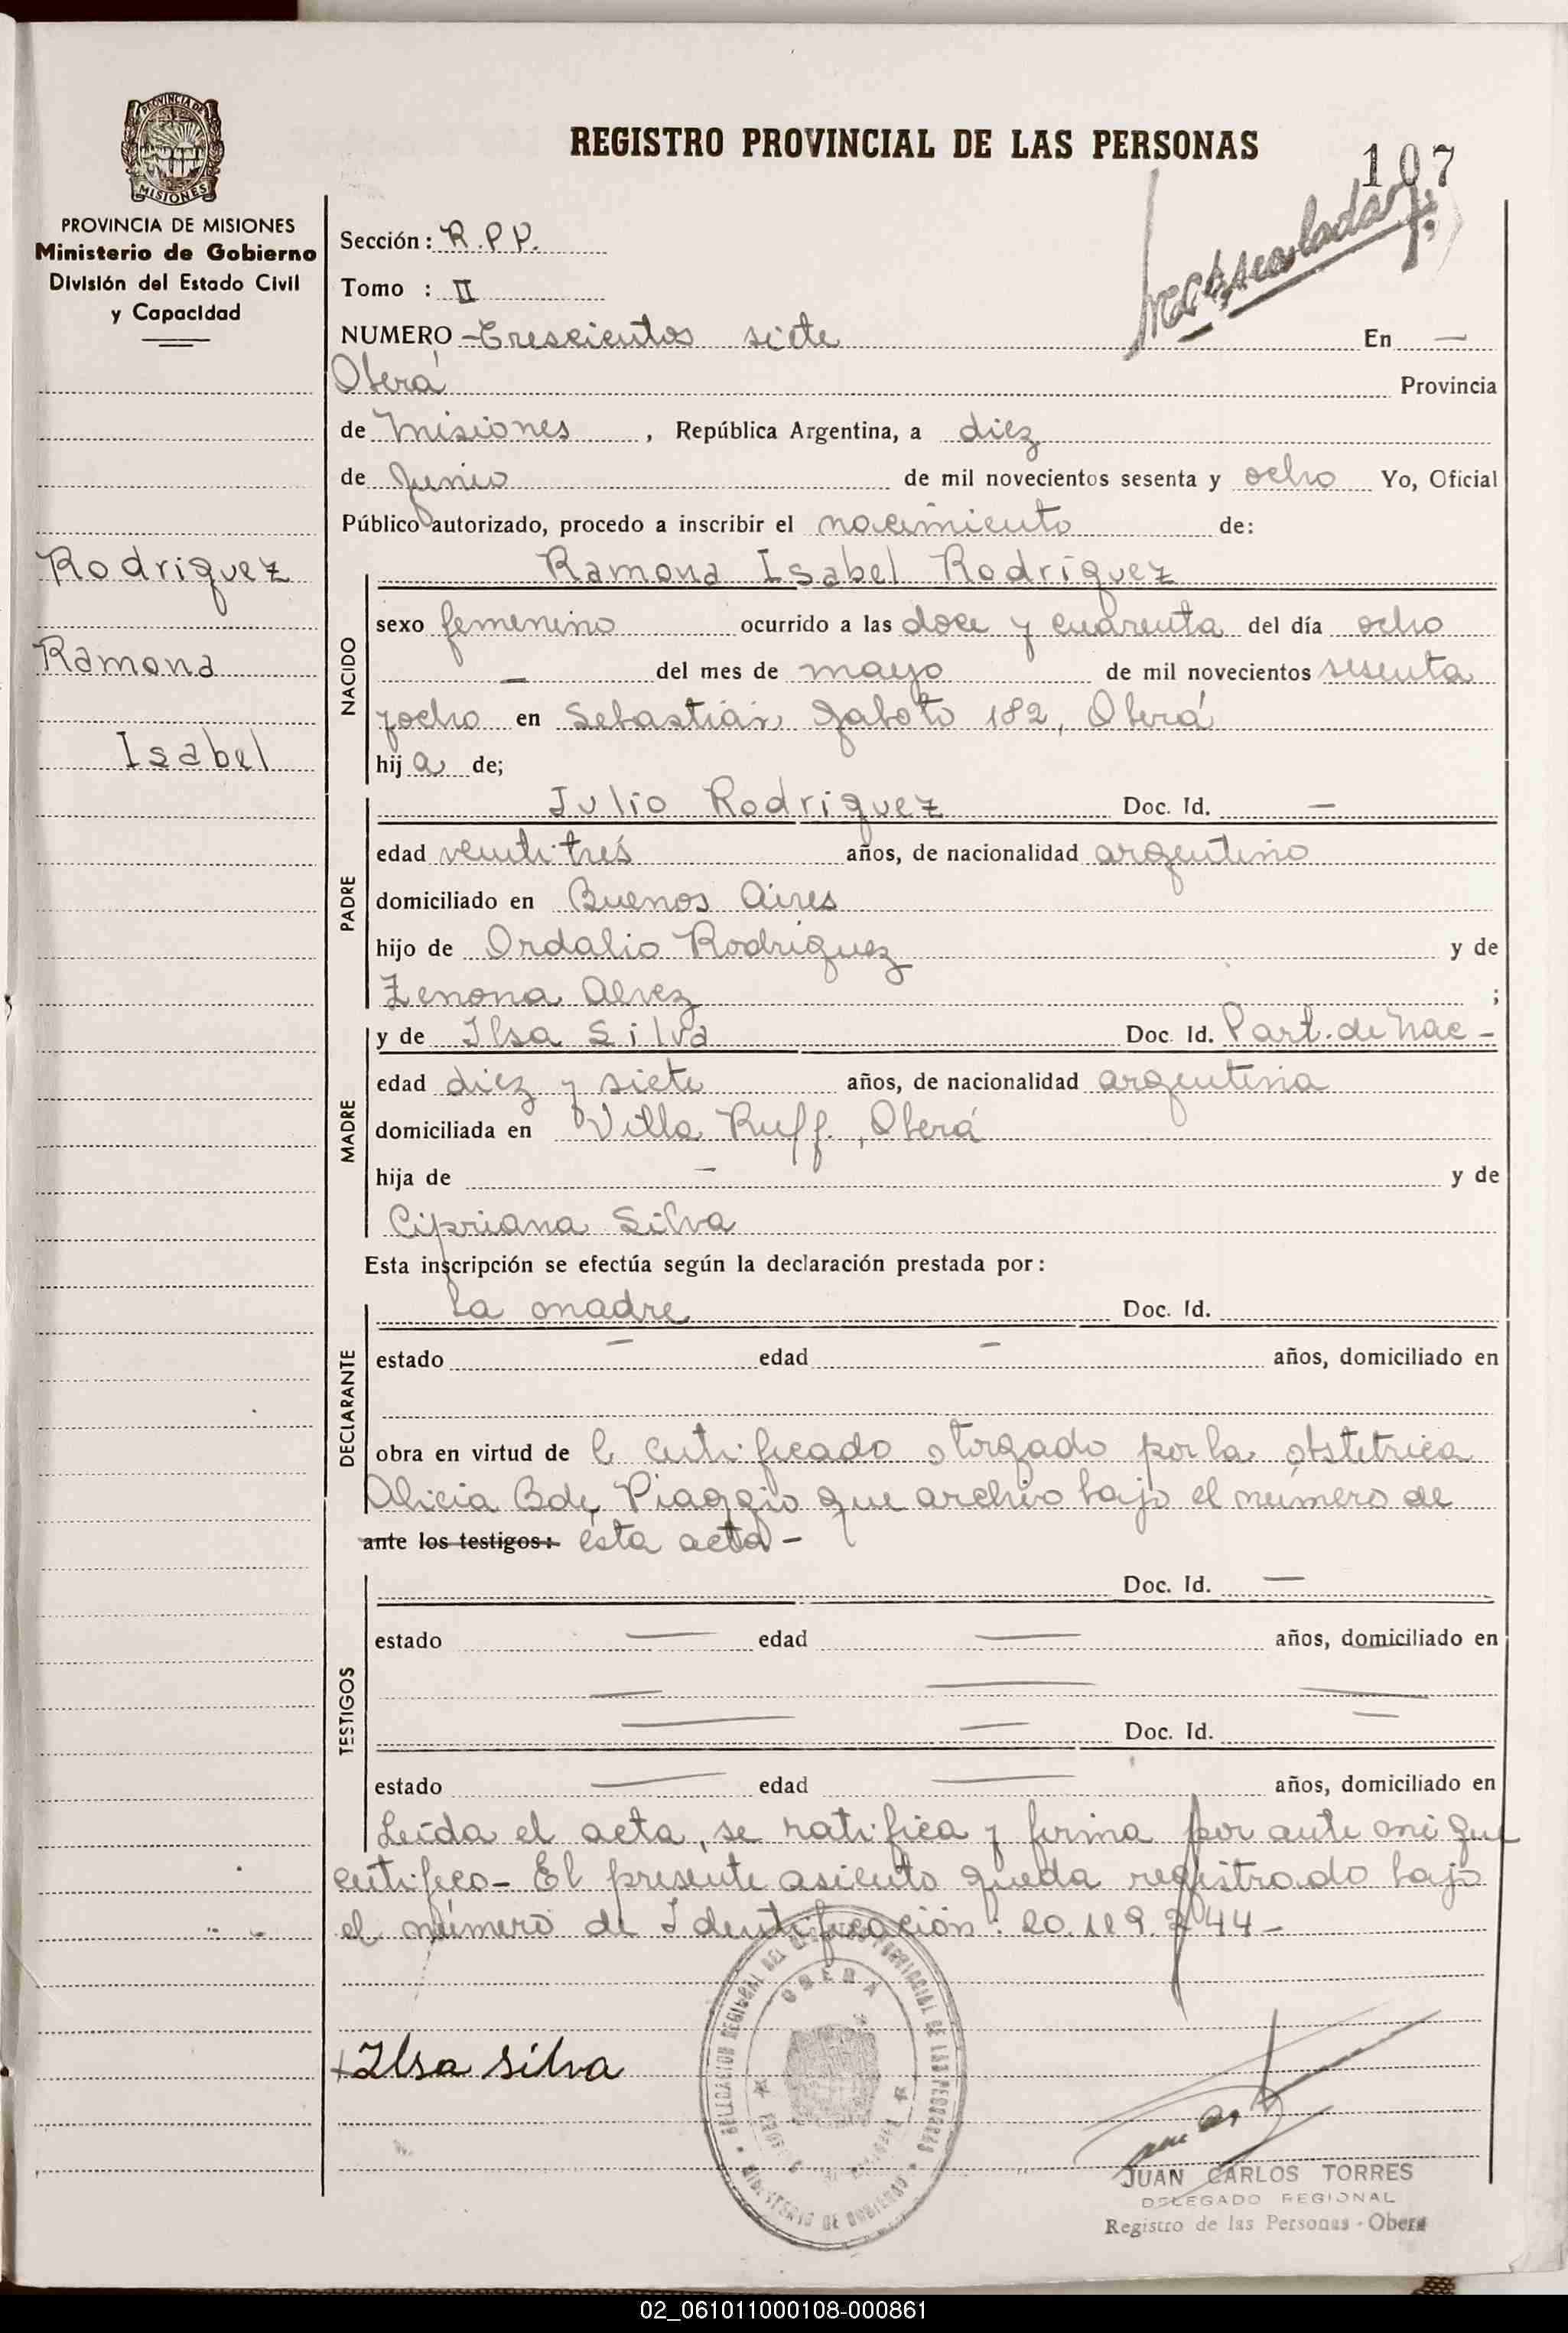 PROVINCIA DE MISIONES
Ministerio de Gobierno
División del Estado Civil
y Capacidad
REGISTRO PROVINCIAL DE LAS PERSONAS
107
Sección: R.P.P.
Tomo : II
NUMERO - Trescientos siete En —
Oberá Provincia
de Misiones , República Argentina, a diez
de Junio de mil novecientos sesenta y ocho Yo, Oficial
Público autorizado, procedo a inscribir el nacimiento de:
Rodriguez
Ramona
Isabel
NACIDO
Ramona Isabel Rodríguez
sexo femenino ocurrido a las doce y cuarenta del día ocho
— del mes de mayo de mil novecientos sesenta
yocho en Sebastián Gaboto 182, Oberá
hij a de;
PADRE
Julio Rodriguez Doc. Id. —
edad veintitrés años, de nacionalidad argentino
domiciliado en Buenos Aires
hijo de Ordalio Rodriguez y de
Zenona Alvez ;
MADRE
y de Ilsa Silva Doc. Id. Part. de Nac -
edad diez y siete años, de nacionalidad argentina
domiciliada en Villa Ruff, Oberá
hija de — y de
Cipriana Silva
Esta inscripción se efectúa según la declaración prestada por:
DECLARANTE
la madre Doc. Id.
estado — edad — años, domiciliado en
obra en virtud de l certificado otorgado por la obstetrica
Alicia B de Piaggio que archivo bajo el número de
ante los testigos: ésta acta -
TESTIGOS
Doc. Id. —
estado — edad — años, domiciliado en
— — —
— — Doc. Id. —
estado — edad — años, domiciliado en
Leída el acta, se ratifica y firma por ante mi que
certifico - El presente asiento queda registrado bajo
el número de Identificación: 20.119.744 -
Ilsa silva
DELEGACION REGIONAL DEL REGISTRO PROVINCIAL DE LAS PERSONAS
OBERA
MINISTERIO DE GOBIERNO
JUAN CARLOS TORRES
DELEGADO REGIONAL
Registro de las Personas - Obera
02_061011000108-000861